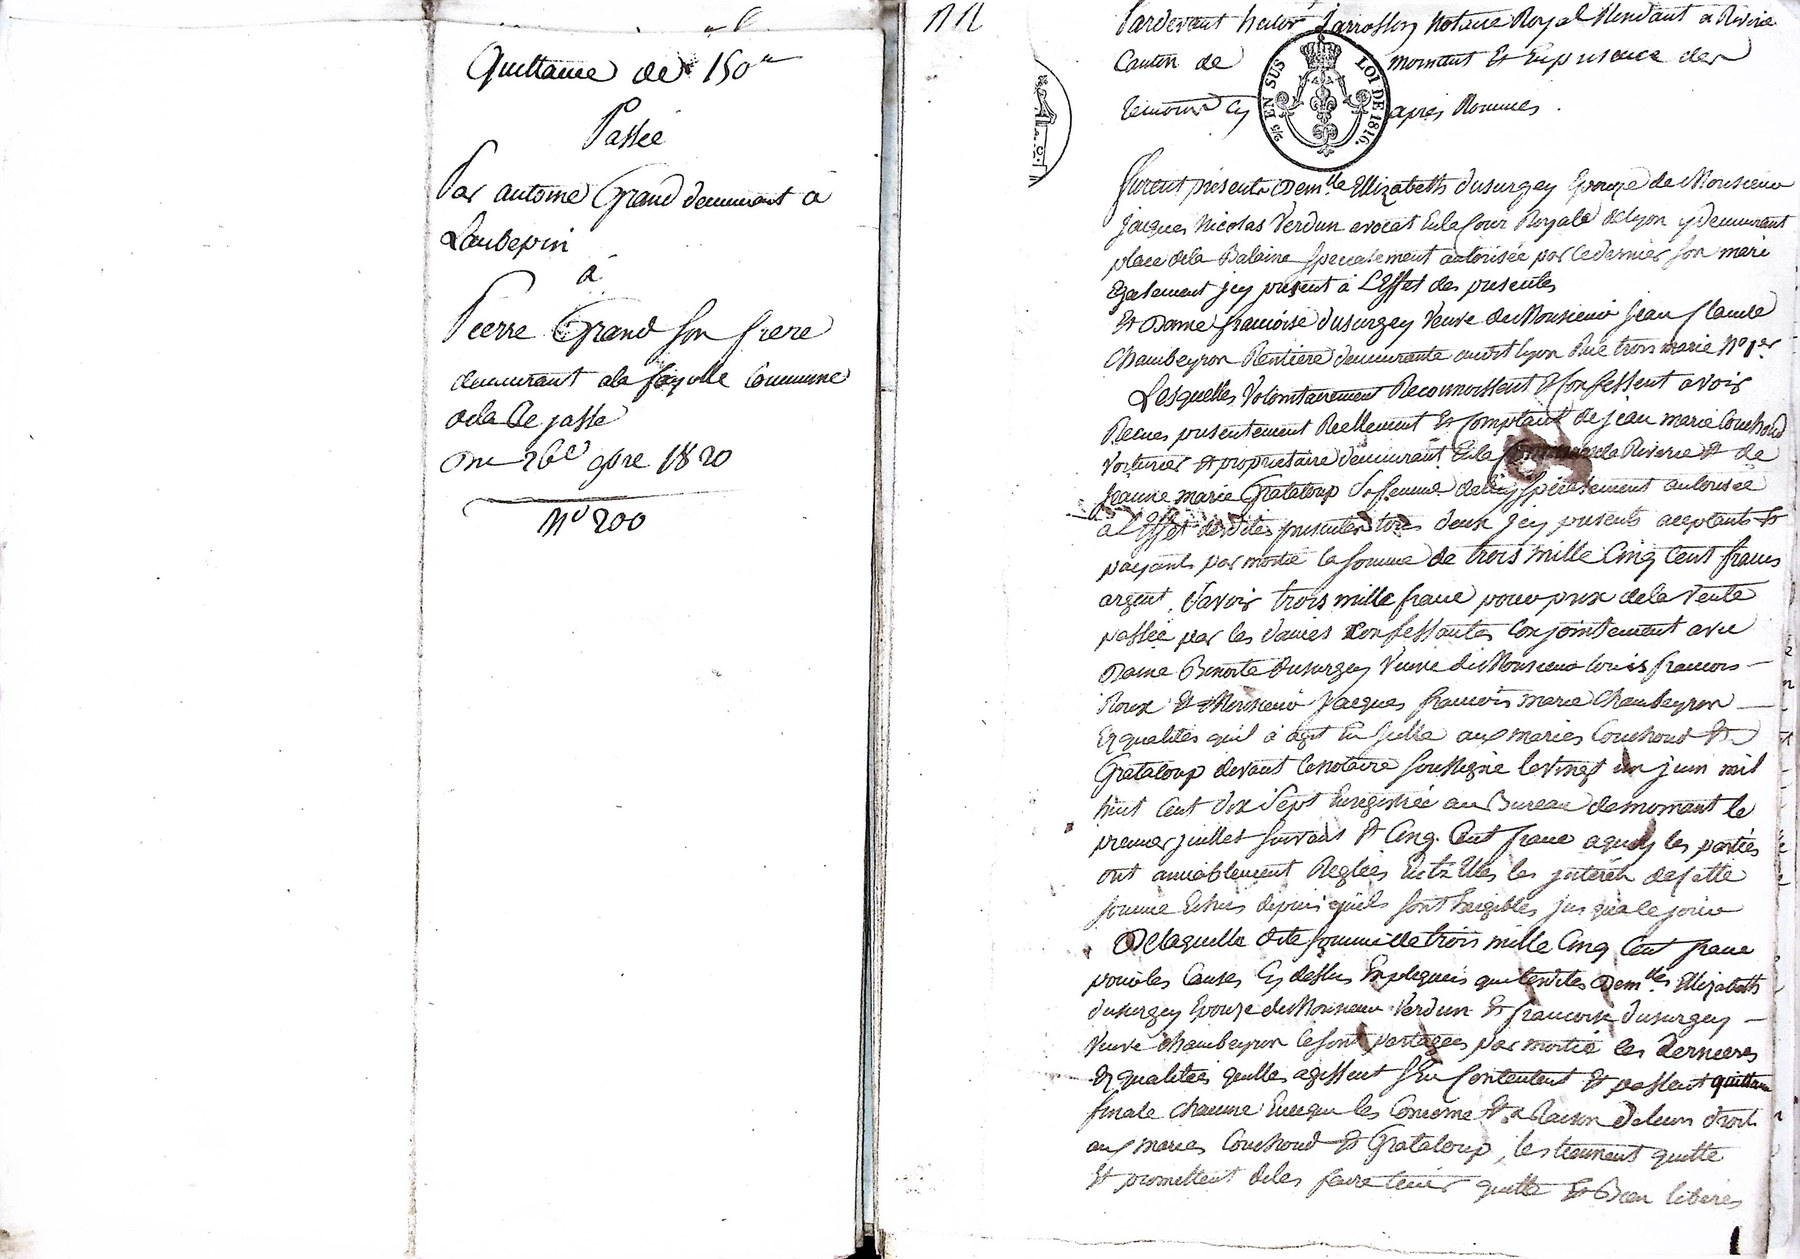 Quittance de 150 #
Passée
Par antoine Grand demeurant à
Laubepin
à
Pierre Grand son frere
demeurant a la fayolle Commune
de la Rejasse
Du 26e 9bre 1820
No 200
Pardevant Jarrosson notaire Royal Residant a Riverie
Canton de mornant Et En presence des
temoins cy apres Nommes.
2/5 EN SUS LOI DE 1816.
Furent présents Demlle Ellizabeth dusurgey Epouze de Monsieur
jacques Nicolas Verdun avocat En la Cour Royale de lyon y demeurant
place de la Balaine specialement autorisée par ce dernier son mari
Egalement jcy present à L'Effet des presentes
Et Dame françoise dusurgey Veuve de Monsieur jean Claude
Chambeyron Rentiere demeurante audit lyon Rue trois marie No 1er
Lesquelles Volontairement Reconnoissent Et Confessent avoir
Recues presentement Reellement Et Comptant de jean marie Couchoud
Voiturier Et proprietaire demeurant En la Commune de Riverie Et de
jeanne marie Grataloup sa femme de luy specialement autorisée
à L'Effet desdites presentes tous deux jcy presents aceptants Et
payants par moitié la somme de trois mille Cinq Cent francs
argent, Savoir trois mille franc pour prix de la Vente
passée par les dames Confessantes Conjointement avec
Dame Benoite dusurgey Veuve de Monsieur louis francois
Roux Et Monsieur jacques francois marie Chambeyron
Ez qualités quil à agit En Icelle aux maries Couchoud Et
Grataloup devant le notaire soussigné le vingt un juin mil
huit Cent dix Sept Enregistrée au Bureau de mornant le
premier juillet suivant Et Cinq Cent franc a quoy les parties
ont amiablement Reglées Entr'Elles les jnterêts de Cette
somme Echus depuis quils sont Exegibles jusqua Ce jour
De laquelle dite somme de trois mille Cinq Cent franc
pour les Causes Cy dessus Expliquées quelesdites Demlles Ellizabeth
dusurgey Epouze de Monsieur Verdun Et francoise dusurgey
Veuve Chambeyron Ce sont partagées par moitié les dernieres
Ez qualitées quelles agissent s'En Contentent Et passent quittance
finale chacune En ce que les Concerne Et a Raison de leurs droits
aux maries Couchoud Et Grataloup, les tiennent quitte
Et promettent de les faire tenir quitte Et Bien liberés